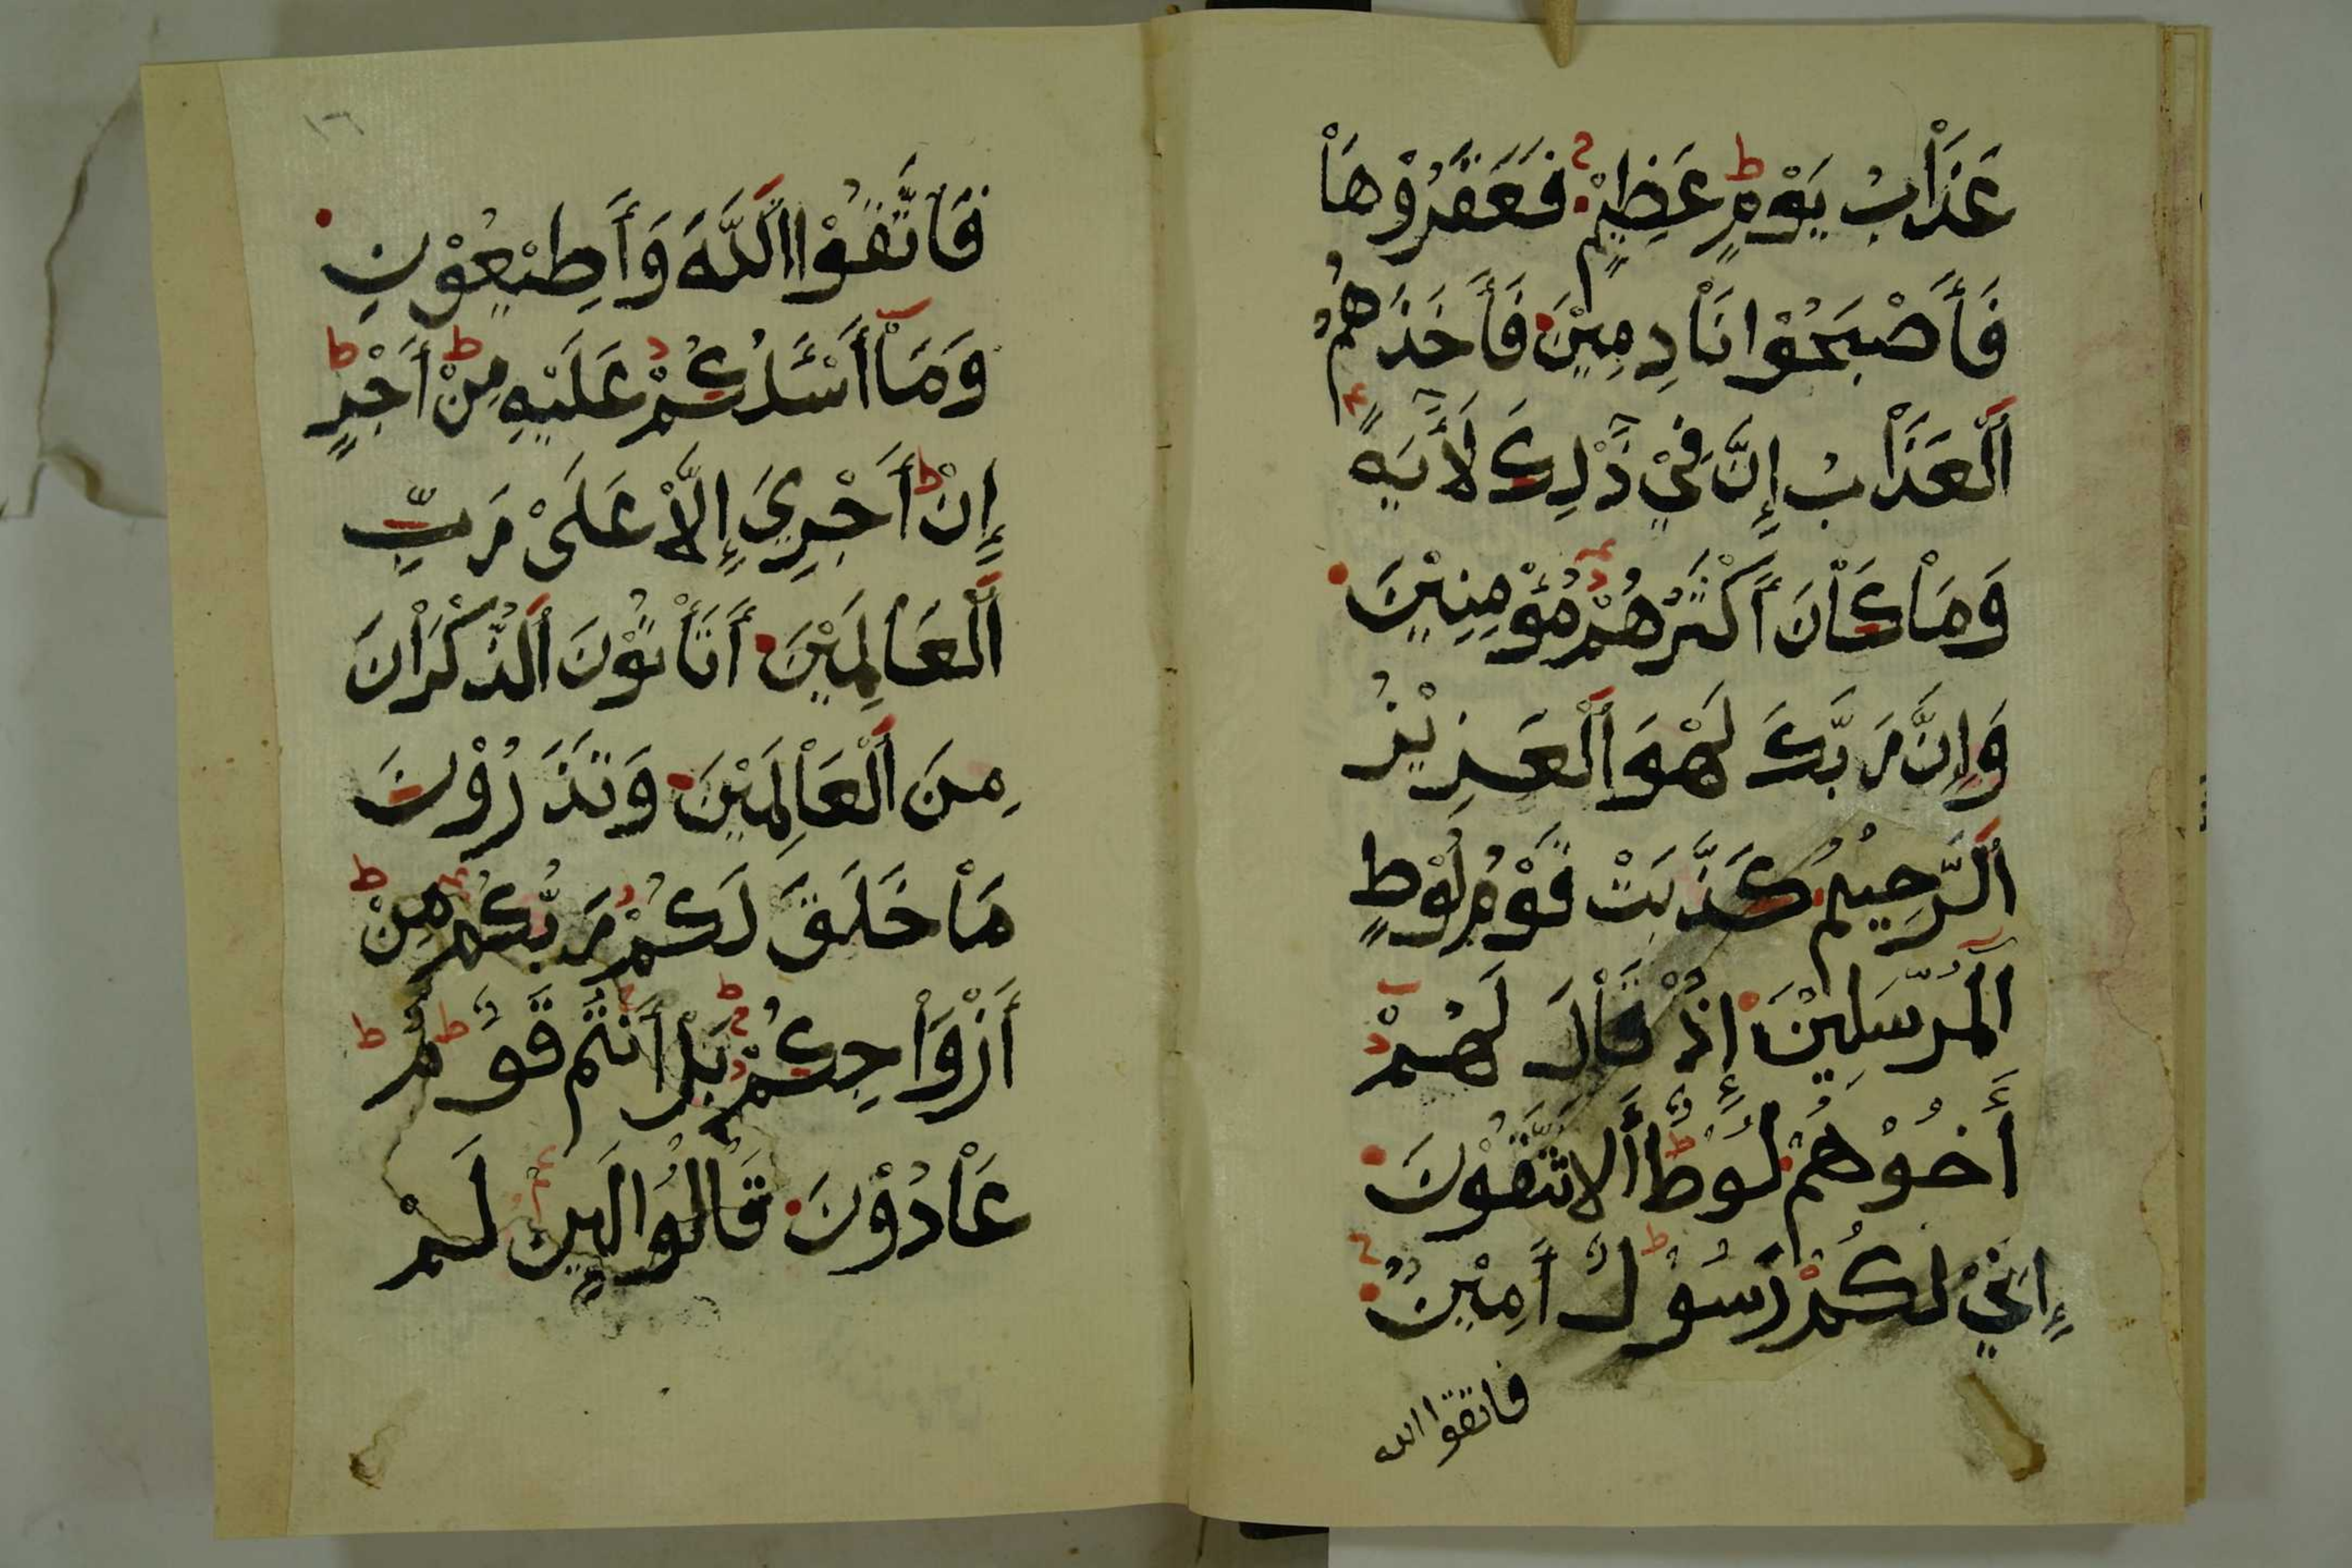 عَذَاْبُ يَوْمٍ عَظِيْمٍ فَعَقَرُوْهَاْ
فَأَصْبَحُوْا نَاْدِمِيْنَ فَأَخَذَهُمُ
اَلْعَذَاْبُ إِنَّ فِيْ ذَٰلِكَ لَأَيَةً
وَمَاْ كَاْنَ أَكْثَرُهُمْ مُؤْمِنِيْنَ
وَإِنَّ رَبَّكَ لَهْوَ اَلْعَزِيْزُ
اَلرَّحِيْمُ كَذَّبَتْ قَوْمُ لُوْطٍ
اَلْمُرْسَلِيْنَ إِذْ قَاْلَ لَهُمْ
أَخُوْهُمْ لُوْطٌ أَلَا تَتَّقُوْنَ
إِنِّيْ لَكُمْ رَسُوْلٌ أَمِيْنٌ
فاتقوا الله
١٦
فَاتَّقُوْا اَللَّهَ وَأَطِيْعُوْنِ
وَمَاْ أَسْئَلُكُمْ عَلَيْهِ مِنْ أَجْرٍ
إِنْ أَجْرِيَ إِلَّاْ عَلَىْ رَبِّ
اَلْعَاْلَمِيْنَ أَتَأْتُوْنَ اَلذُّكْرَاْنَ
مِنَ اَلْعَاْلَمِيْنَ وَتَذَرُوْنَ
مَاْ خَلَقَ لَكُمْ رَبُّكُمْ مِنْ
أَزْوَاْجِكُمْ بَلْ أَنْتُمْ قَوْمٌ
عَاْدُوْنَ قَاْلُوْا لَئِنْ لَمْ